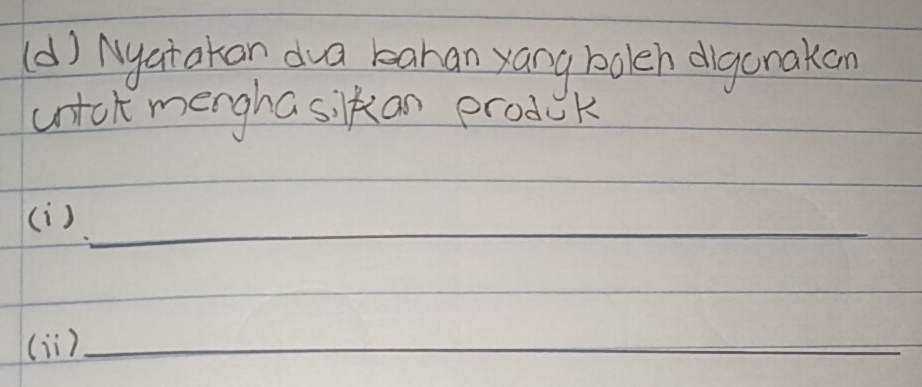 (d) Nyatakan dua bahan yang boleh digunakan
untuk menghasilkan produk
(i)
(ii)